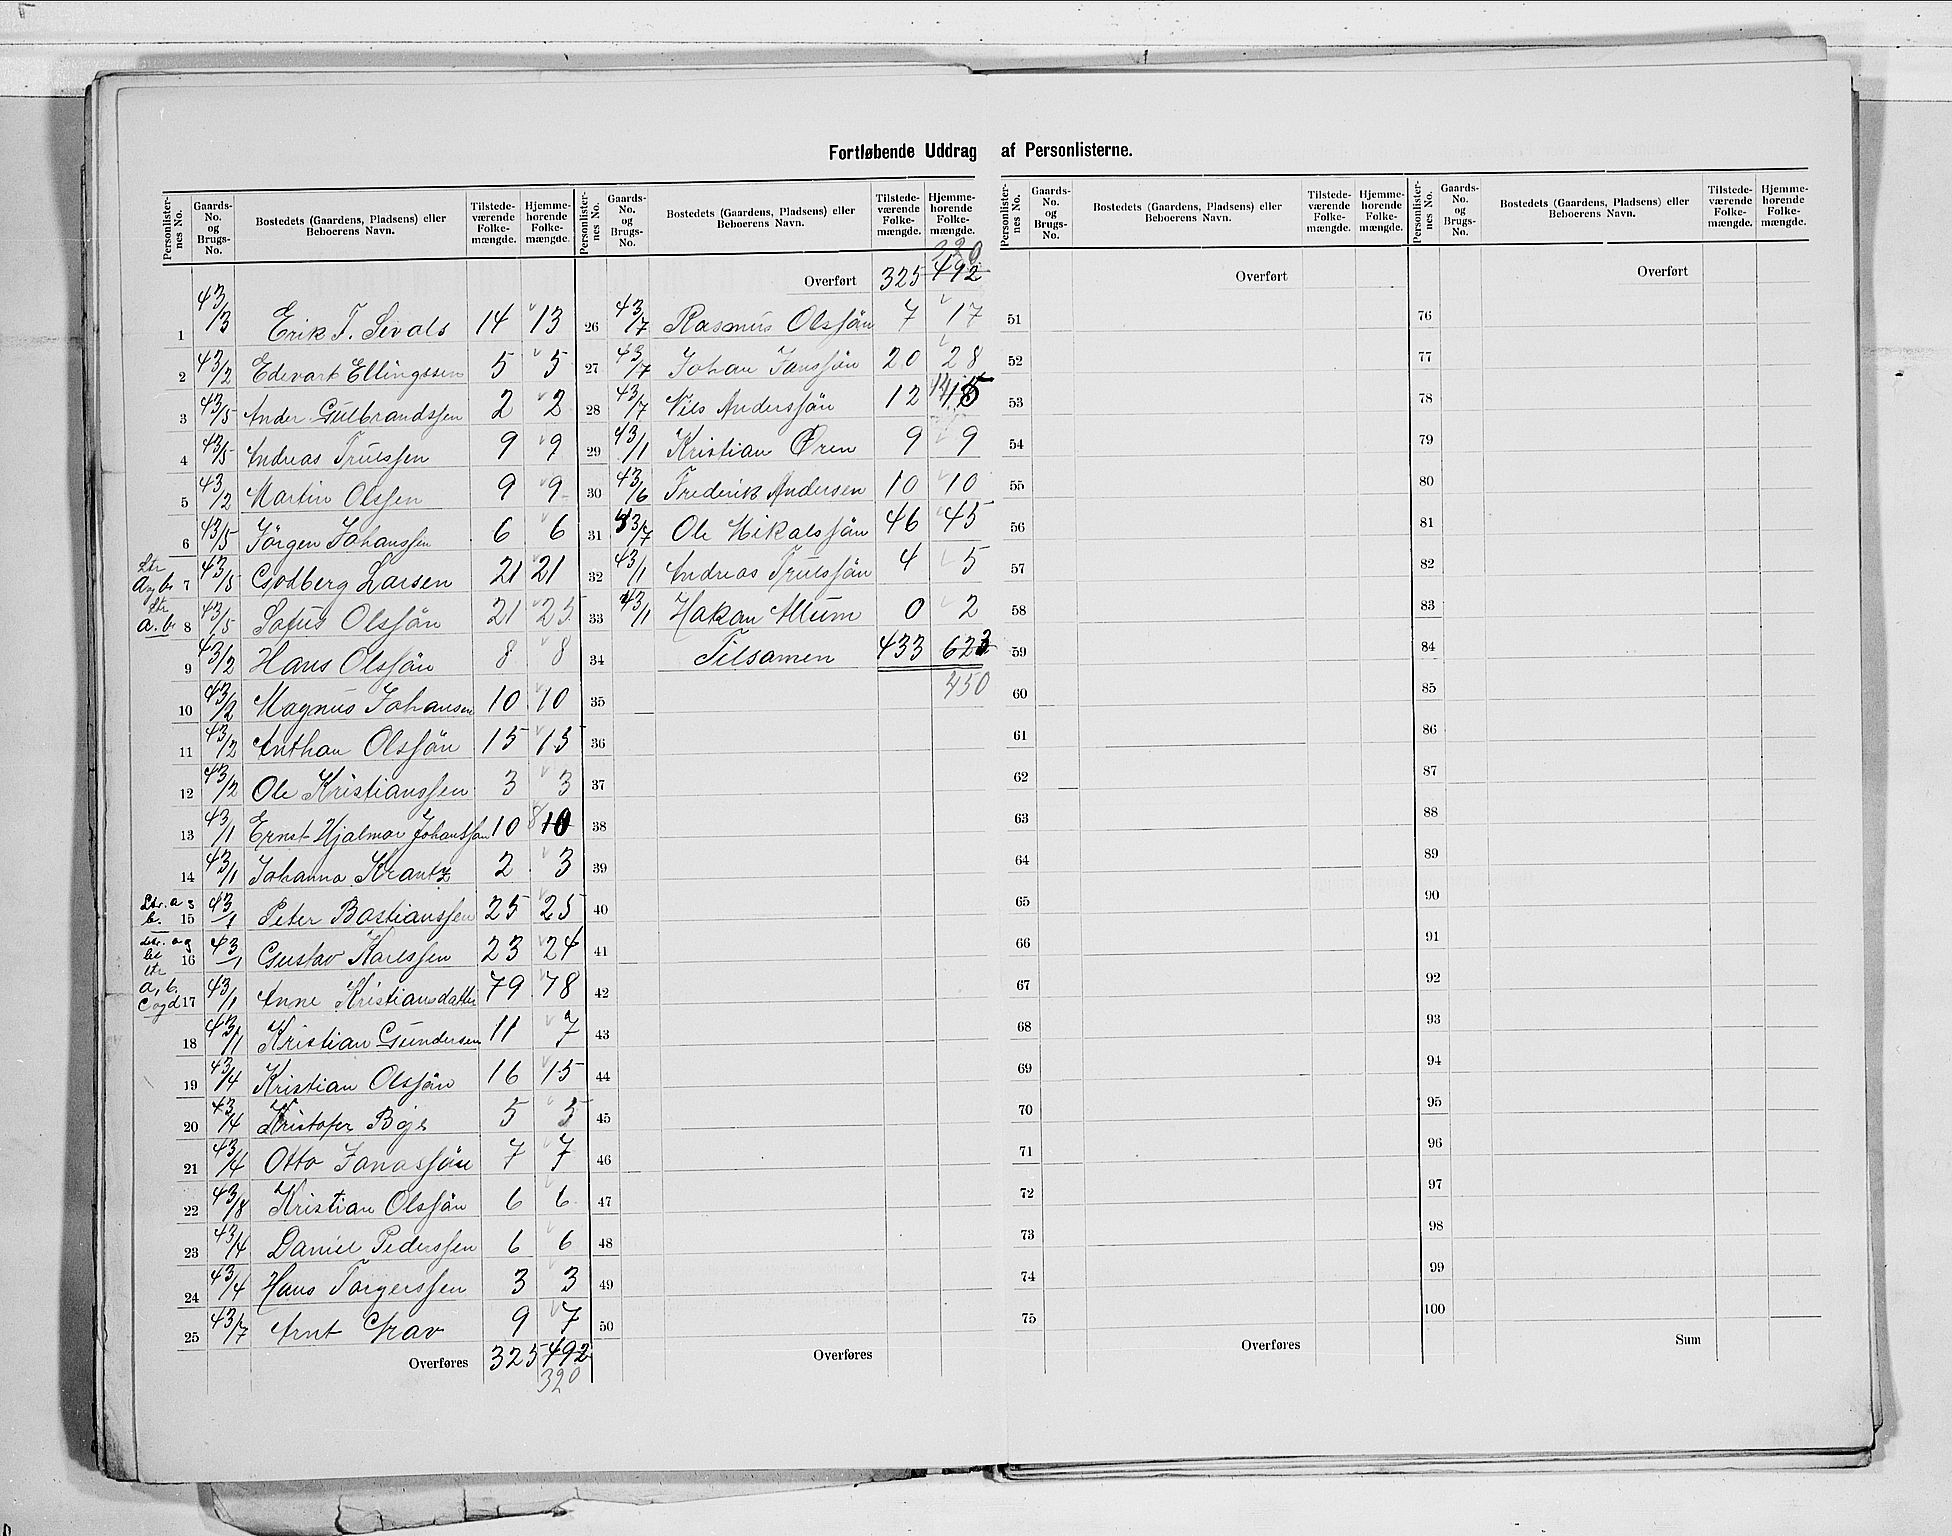 Fortløbende Uddrag af Personlisterne.
Personlister-nes No. | Gaards-No. og Brugs-No. | Bostedets (Gaardens, Pladsens) eller Beboerens Navn. | Tilstede-værende Folke-mængde. | Hjemme-hørende Folke-mængde.
1 43/3 Erik T. Sevals 14 13
2 43/2 Edevart Ellingssen 5 5
3 43/5 Ander Gulbrandssen 2 2
4 43/5 Andreas Trulssen 9 9
5 43/2 Martin Olssen 9 9
6 43/5 Jörgen Johanssen 6 6
Ltr a, b. 7 43/5 Godberg Larsen 21 21
Ltr a. b. 8 43/5 Sofus Olssön 21 25
9 43/2 Hans Olssön 8 8
10 43/2 Magnus Johansen 10 10
11 43/2 Anthan Olssön 15 15
12 43/2 Ole Kristianssen 3 3
13 43/1 Ernst Hjalmar Johanssön 10 8 10
14 43/1 Johanna Krantz 2 3
Ltr. a b. 15 43/1 Peter Bastianssen 25 25
Ltr. a og be 16 43/1 Gustav Karlssen 23 24
Ltr a, b. C og d 17 43/1 Anne Kristiansdatter 79 78
18 43/1 Kristian Gundersen 11 7
19 43/4 Kristian Olssön 16 15
20 43/4 Kristofer Böje 5 5
21 43/4 Otto Jonassön 7 7
22 43/8 Kristian Olssön 6 6
23 43/4 Daniel Pederssen 6 6
24 43/4 Hans Torgerssen 3 3
25 43/7 Arnt Grav 9 7
Overføres 325 492
320
Personlister-nes No. | Gaards-No. og Brugs-No. | Bostedets (Gaardens, Pladsens) eller Beboerens Navn. | Tilstede-værende Folke-mængde. | Hjemme-hørende Folke-mængde.
320
Overført 325 492
26 43/7 Rasmus Olssön 7 17
27 43/7 Johan Janssön 20 28
28 43/7 Nils Anderssön 12 14 15
29 43/1 Kristian Ören 9 9
30 43/6 Frederik Andersen 10 10
31 43/7 Ole Mikalssön 46 45
32 43/1 Andreas Trulssön 4 5
33 43/1 Hakan Allum 0 2
34 Tilsamen 433 623
450
35
36
37
38
39
40
41
42
43
44
45
46
47
48
49
50
Overføres
Personlister-nes No. | Gaards-No. og Brugs-No. | Bostedets (Gaardens, Pladsens) eller Beboerens Navn. | Tilstede-værende Folke-mængde. | Hjemme-hørende Folke-mængde.
Overført
51
52
53
54
55
56
57
58
59
60
61
62
63
64
65
66
67
68
69
70
71
72
73
74
75
Overføres
Personlister-nes No. | Gaards-No. og Brugs-No. | Bostedets (Gaardens, Pladsens) eller Beboerens Navn. | Tilstede-værende Folke-mængde. | Hjemme-hørende Folke-mængde.
Overført
76
77
78
79
80
81
82
83
84
85
86
87
88
89
90
91
92
93
94
95
96
97
98
99
100
Sum